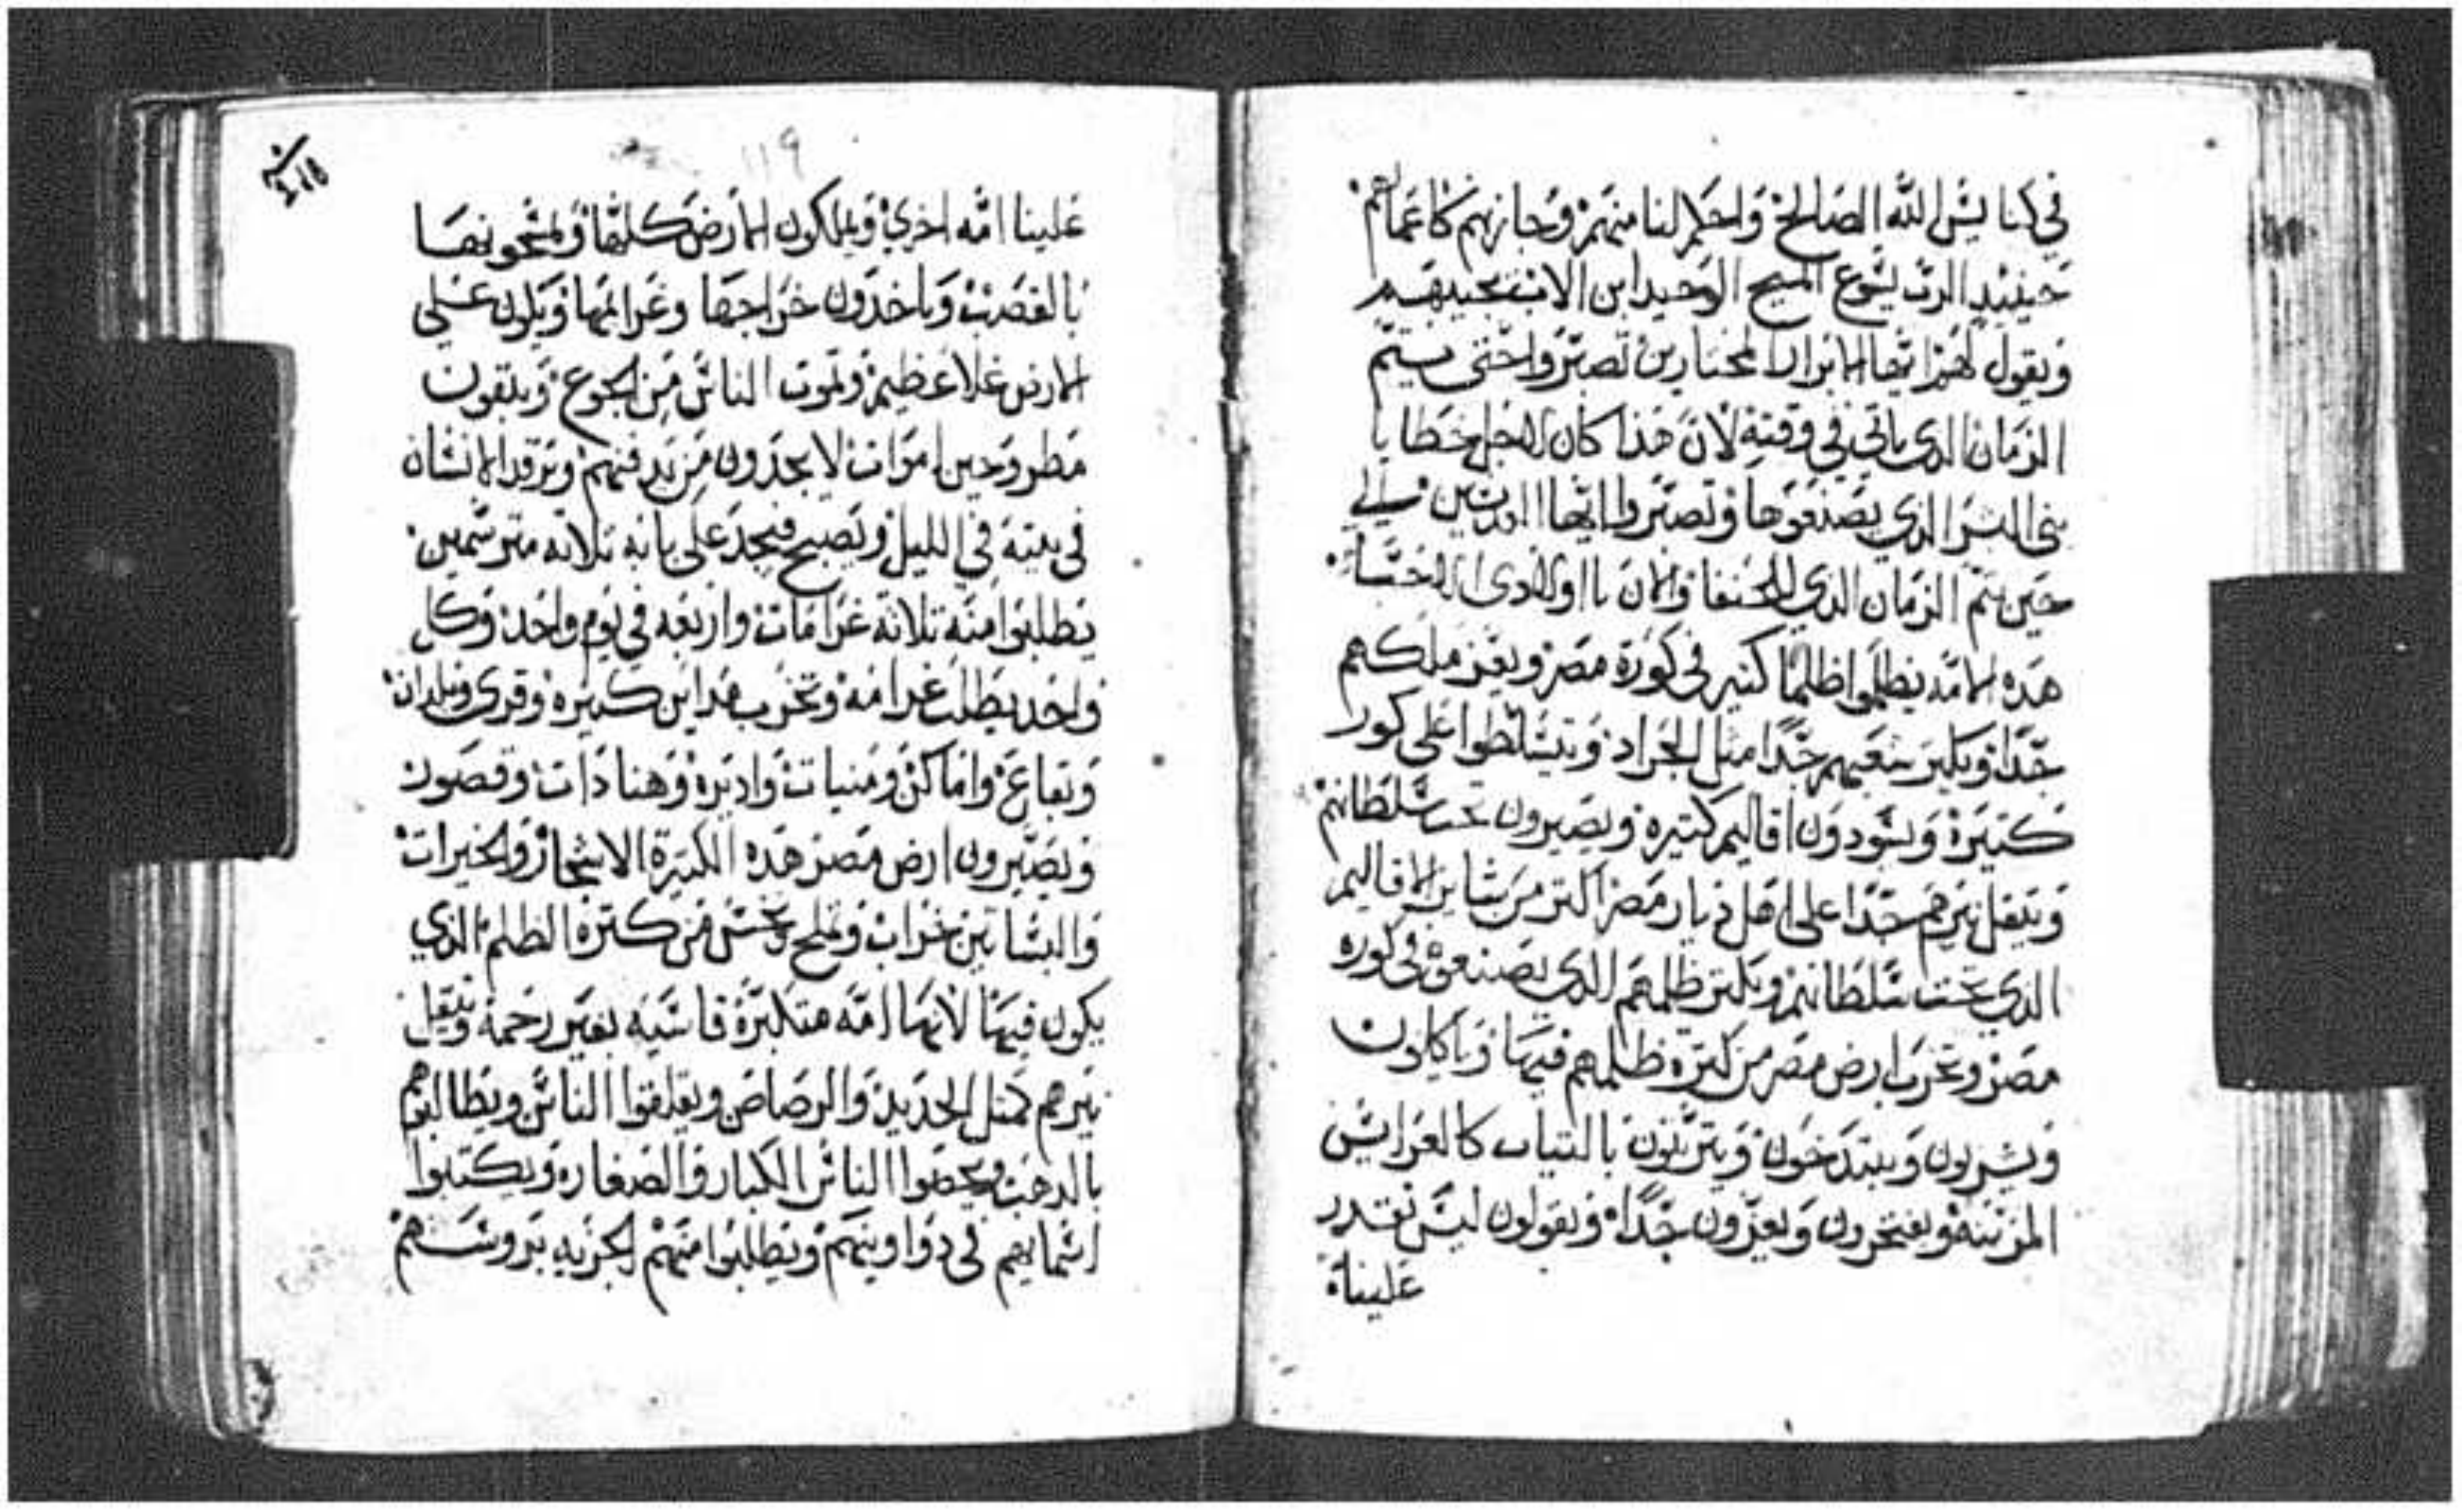 في كنايس الله الصالح واحكم لنا منهم وجازيهم كاعمالهم
حينيد الرب يسوع المسيح الوحيد ابن الاب يجيبهم
ويقول لهم ايها الابرار المختارين تصبروا حتى يتم
الزمان الدي ياتي في وقته لان هذا كان لاجل خطايا
بني البشر الذي يصنعوها وتصبروا ايها القديسين
حين يتم الزمان الدي للحنفا والان يا اولادي الاحبا
هده الامه يظلموا ظلما كتير في كورة مصر ويعز ملكهم
جدا ويكتر شعبهم جدا متل الجراد ويتسلطوا على كور
كتيرة ويسودون اقاليم كتيره ويصيرون تحت سلطانهم
ويتقل نيرهم جدا على اهل ديار مصر اكتر من ساير الاقاليم
الدي تحت سلطانهم ويكتر ظلمهم الدي يصنعوه في كوره
مصر وتخرب ارض مصر من كترة ظلمهم فيها وياكلون
ويشربون ويتزينون بالتياب كالعرايس
المزينه ويفتخرون ويعزون جدا ويقولون ليس تقدر
علينا
119
علينا امه اخري ويملكون الارض كلها ويمسحونها
بالقصب وياخدون خراجها وغرايمها ويكون على
الارض غلا عظيم وتموت الناس من الجوع ويبقون
مطروحين اموات لا يجدون من يدفنهم ويرقد الانسان
في بيته في الليل ويصبح فيجد على بابه تلاته مترسمين
يطلبوا منه تلاتة غرامات واربعه في يوم واحد وكل
واحد يطلب غرامه وتخرب مداين كتيره وقرى وبلدان
وبقاع واماكن ومنيات واديره وقصور
ويصيرون ارض مصر هده الكتيرة الاشجار والخيرات
والبساتين خراب من كترة الظلم الدي
يكون فيها لانها امه متكبرة قاسيه بغير رحمة ويتقل
نيرهم متل الحديد والرصاص ويعلقوا الناس ويطالبوهم
بالدهب ويحصوا الناس الكبار والصغار ويكتبوا
اسمايهم في دواوينهم ويطلبوا منهم الجزيه بروسهم